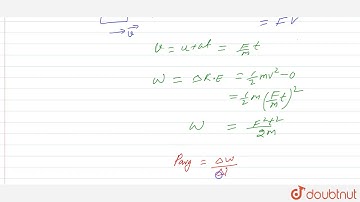 = FV
→ v⃗
v = u+at = F/m t
W = ΔK·E = 1/2 mv² - 0
= 1/2 m (F/m t)²
W = F²t²/2m
Pavg = ΔW/Δt
doubtnut